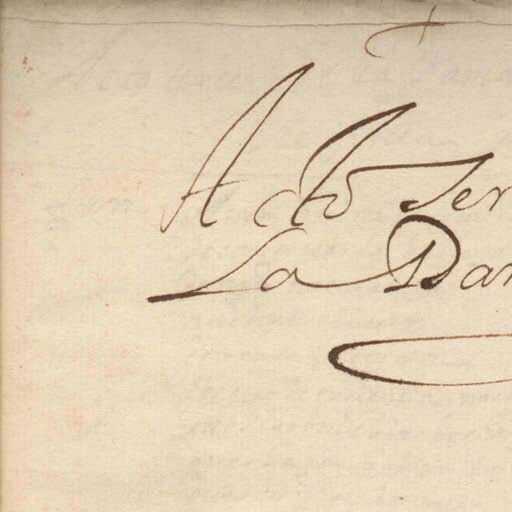 Acto Ser
La Dan